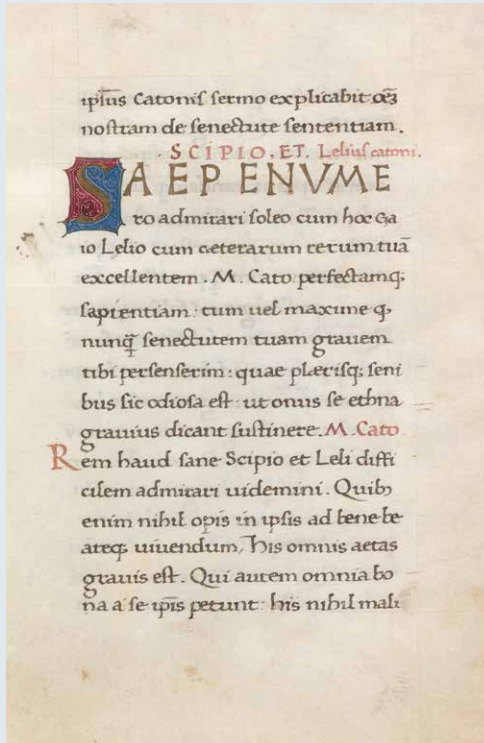 ipsius Catonis sermo explicabit oẽʒ
nostram de senectute sententiam.
. SCIPIO. ET. Lelius catoni.
SAEPENVME
ro admirari soleo cum hoc Ga
io Lelio cum cæterarum rerum tuã
excellentem . M. Cato perfectamq;
sapientiam : tum uel maxime q,
nunq̃ senectutem tuam gravem
tibi persenserim : quae plærisq; seni
bus sic odiosa est : ut onus se ethna
gravius dicant sustinere. M. Cato
Rem haud sane Scipio et Leli diffi
cilem admirari uidemini . Quibʒ
enim nihil opis in ipsis ad bene be
ateq; uiuendum, his omnis aetas
gravis est . Qui autem omnia bo
na a se ip̃is petunt : his nihil mali